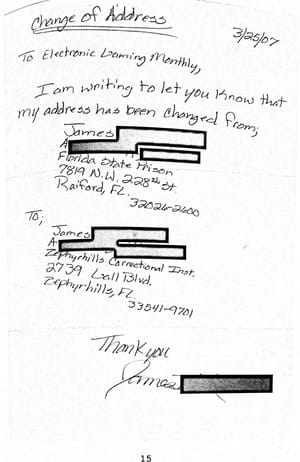 Change of Address
3/25/07
To Electronic Gaming Monthly,
I am writing to let you know that
my address has been changed from;
James
A
Florida State Prison
7819 N.W. 228th St
Raiford, FL.
32026-2600
To;
James
A
Zephyrhills Correctional Inst.
2739 Gall Blvd.
Zephyrhills, FL.
33541-9701
Thank you
James
15